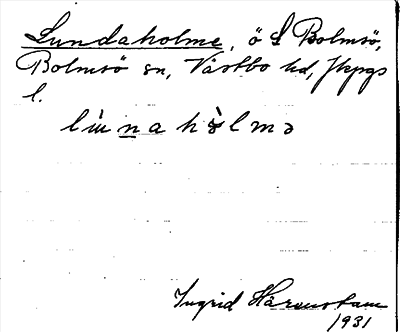 Lundaholme, ö S Bolmsö,
Bolmsö sn, Västbo hd, Jkpgs
l.
lùnahòlmə
Ingrid Härenstam
1931